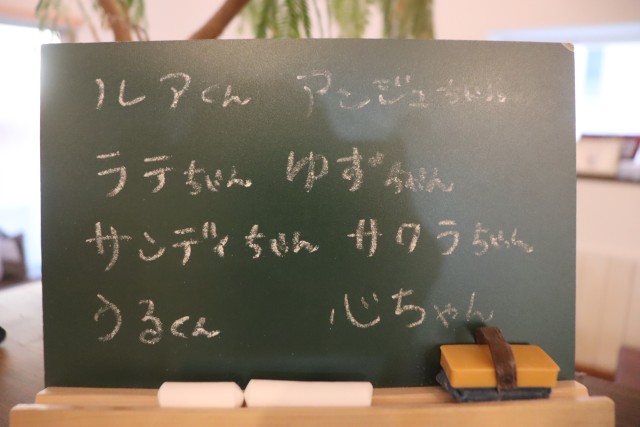 ルアくん アンジュちゃん
ラテちゃん ゆずちゃん
サンディちゃん サクラちゃん
うるくん 心ちゃん